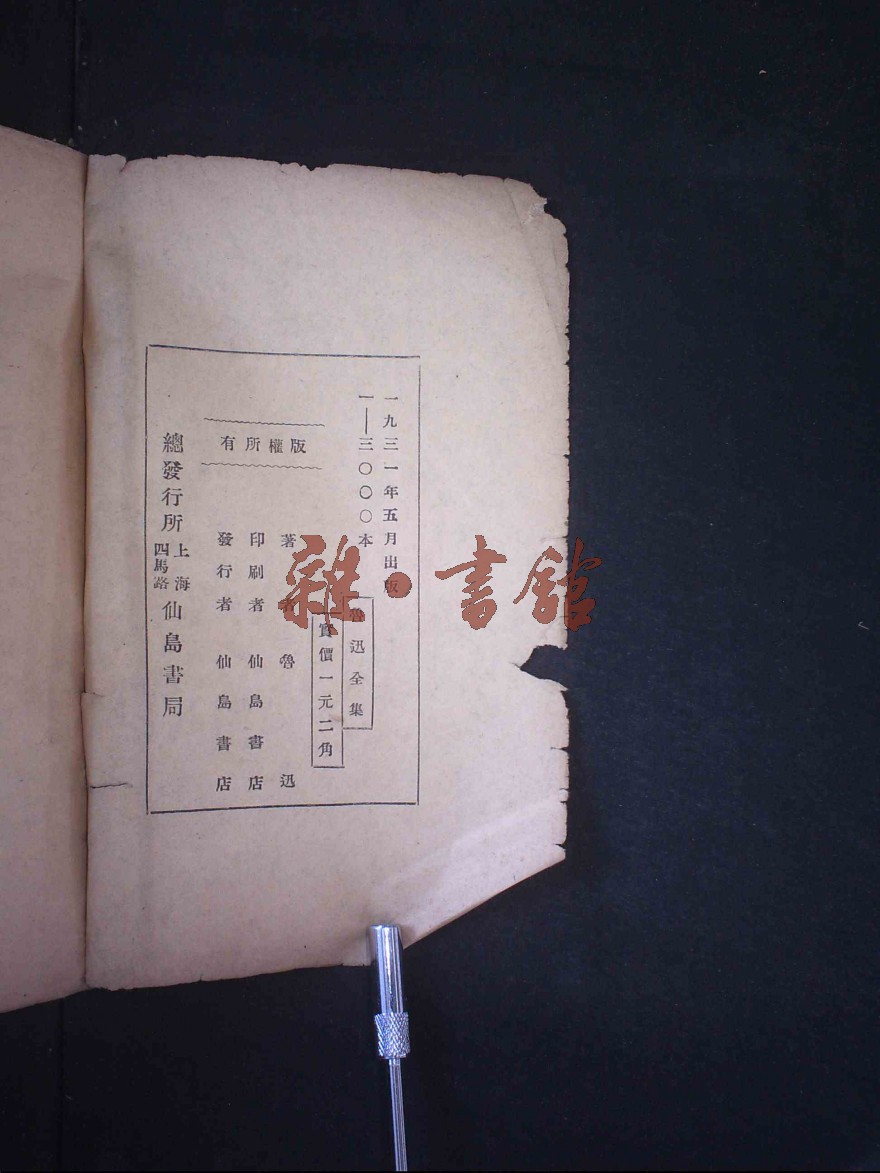 一九三一年五月出版
一—三〇〇〇本
魯迅全集
實價一元二角
版權所有
著者 魯迅
印刷者 仙島書店
發行者 仙島書店
總發行所 上海四馬路 仙島書局
雜·書館